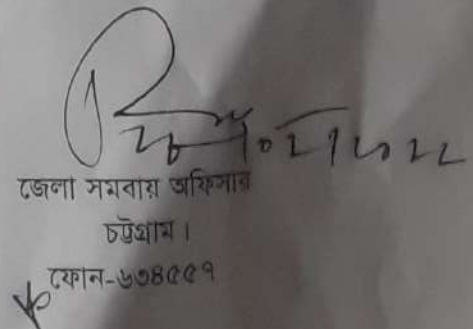 জেলা সমবায় অফিসার
চট্টগ্রাম।
ফোন-৬৩৪৫৫৭